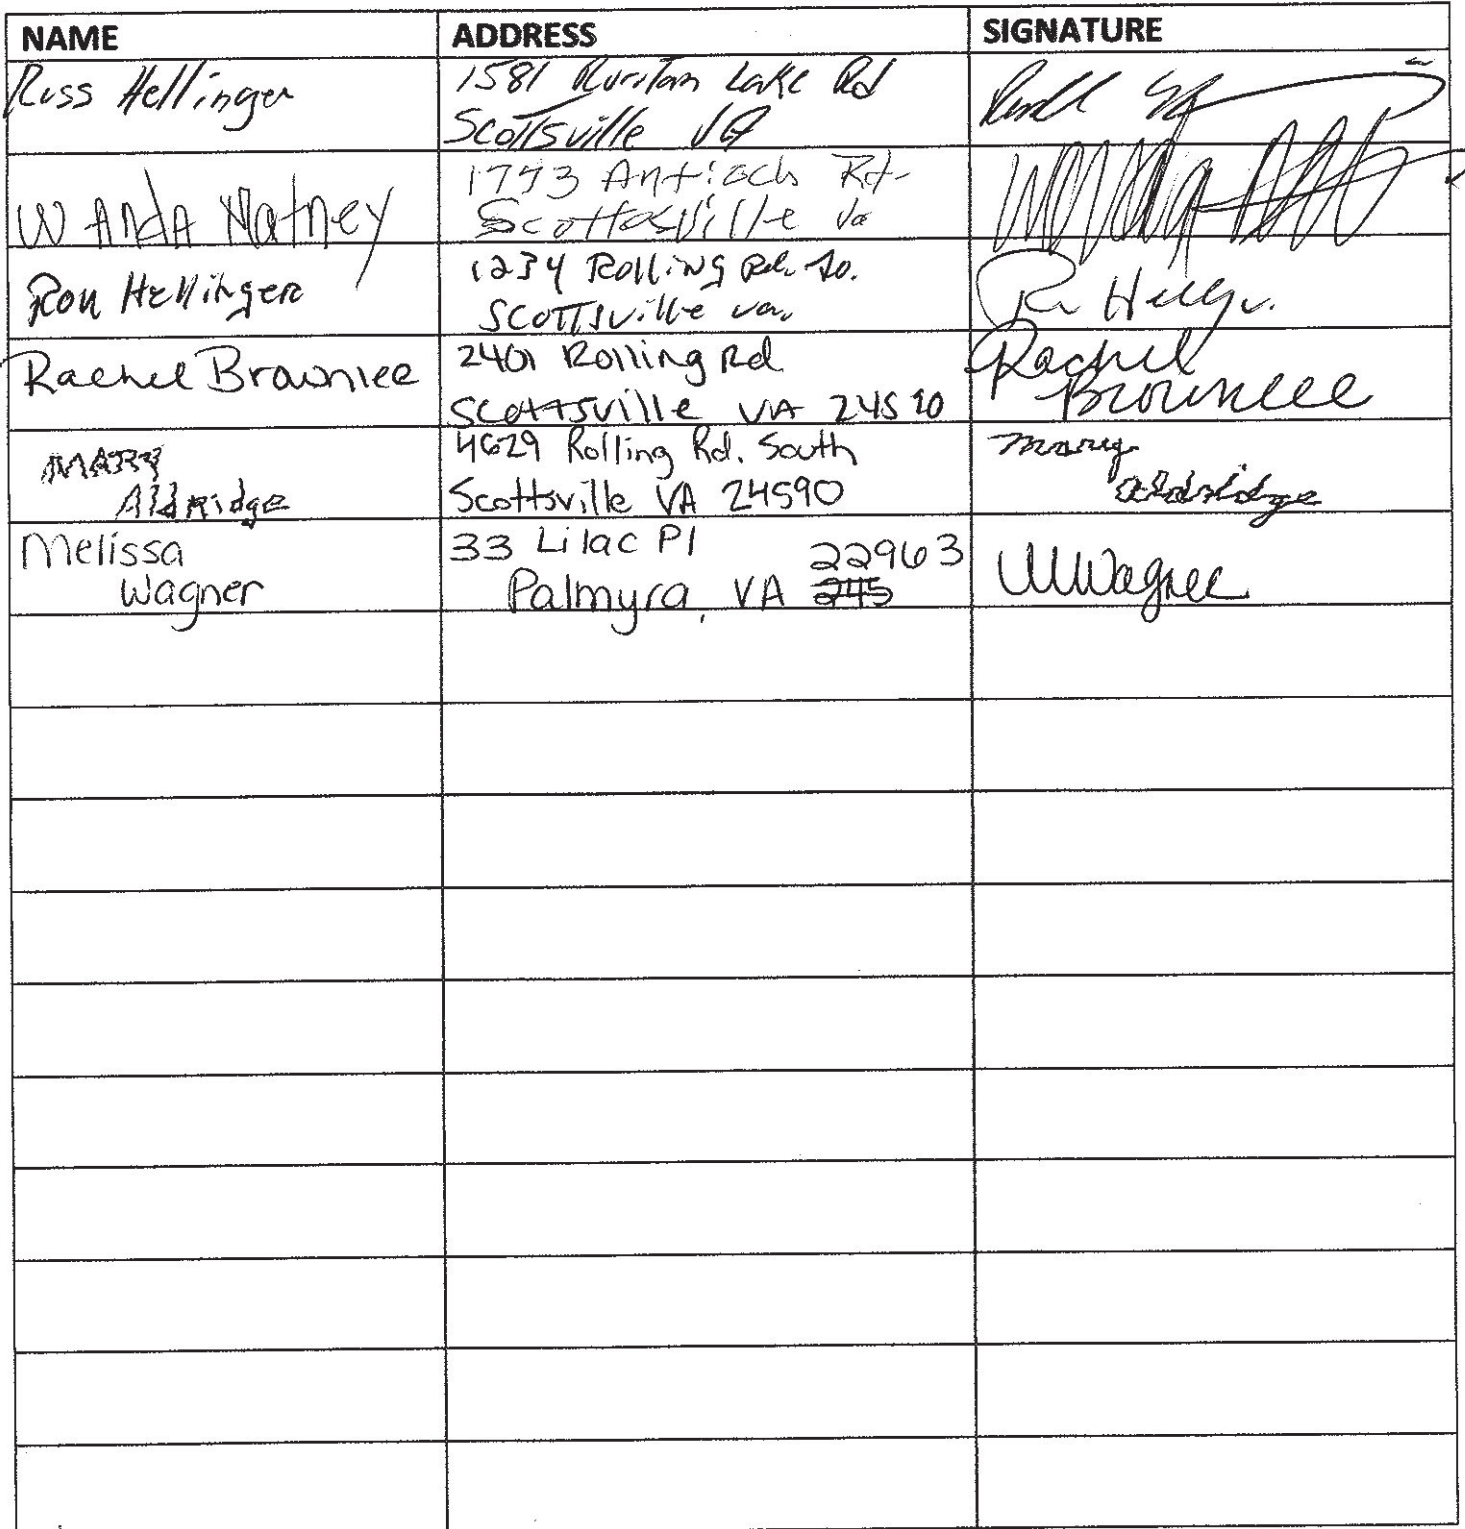 NAME ADDRESS SIGNATURE
Russ Hellinger
1581 Ruritan Lake Rd
Scottsville VA
WANdA Matney
1793 Antioch Rd-
Scottsville Va
Ron Hellinger
1234 Rolling Rd. So.
Scottsville va.
R Hellgr.
Rachel Brownlee
2401 Rolling Rd
Scottsville VA 24590
Rachel
Brownlee
MARY
AldRidge
4629 Rolling Rd. South
Scottsville VA 24590
Mary
Aldridge
Melissa
Wagner
33 Lilac Pl 22963
Palmyra, VA 245
MWagner